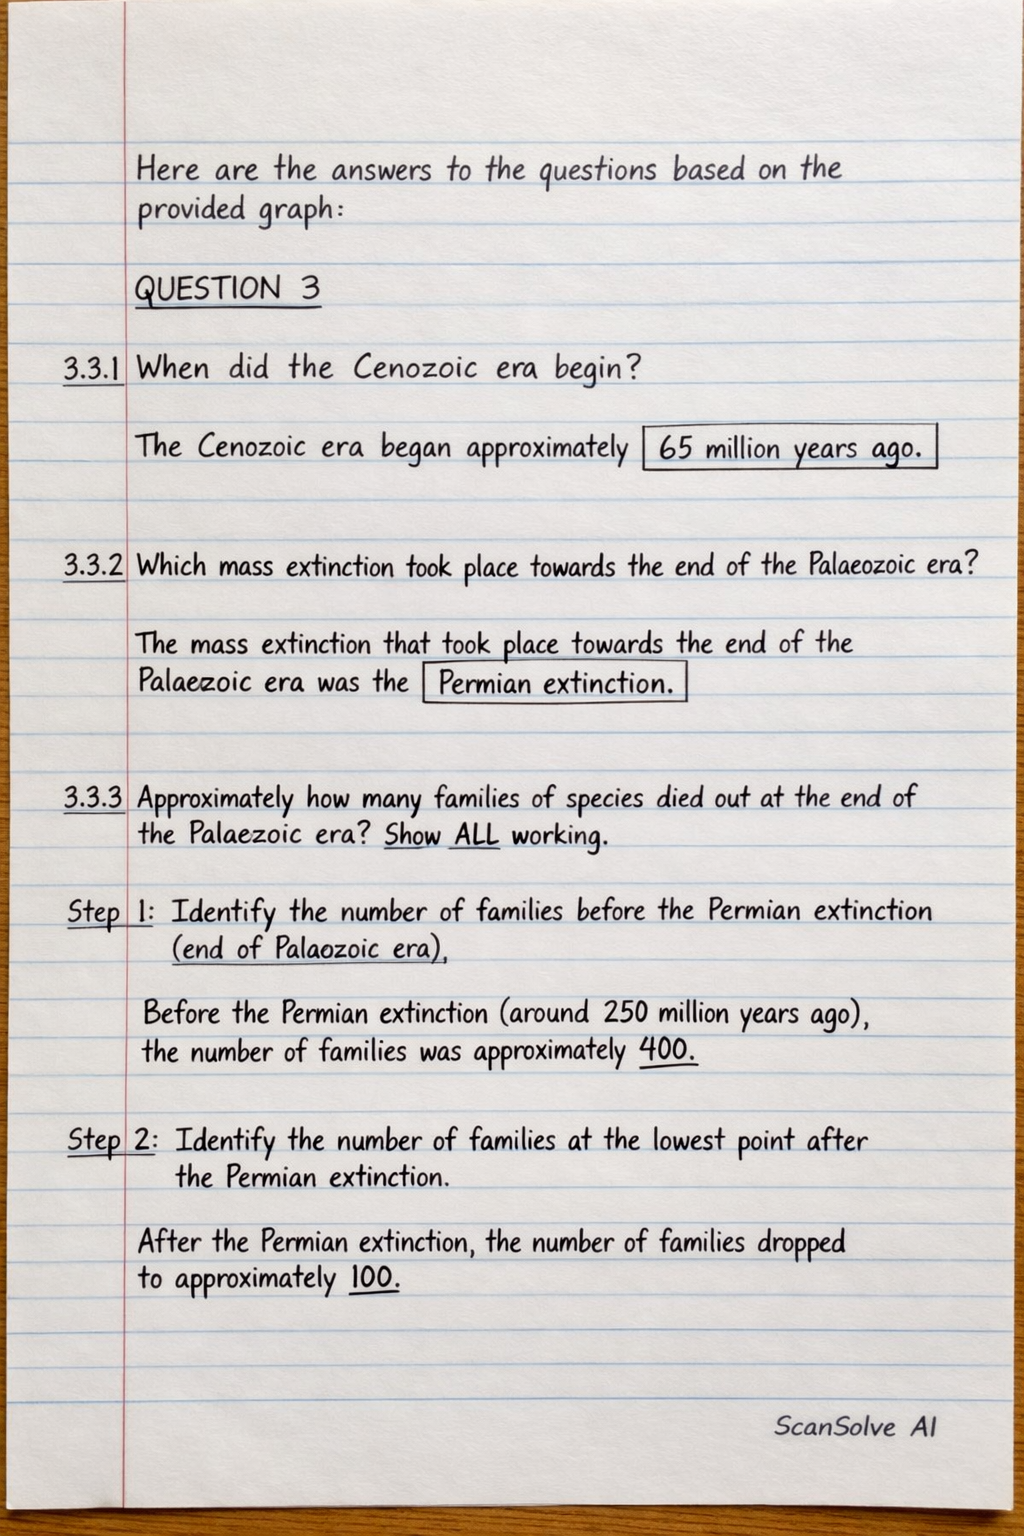 Here are the answers to the questions based on the
provided graph:
QUESTION 3
3.3.1 When did the Cenozoic era begin?
The Cenozoic era began approximately 65 million years ago.
3.3.2 Which mass extinction took place towards the end of the Palaeozoic era?
The mass extinction that took place towards the end of the
Palaezoic era was the Permian extinction.
3.3.3 Approximately how many families of species died out at the end of
the Palaezoic era? Show ALL working.
Step 1: Identify the number of families before the Permian extinction
(end of Palaozoic era),
Before the Permian extinction (around 250 million years ago),
the number of families was approximately 400.
Step 2: Identify the number of families at the lowest point after
the Permian extinction.
After the Permian extinction, the number of families dropped
to approximately 100.
ScanSolve AI